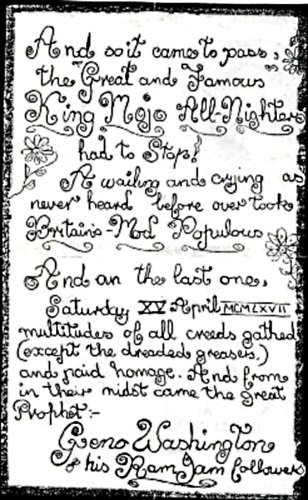 And so it came to pass,
the "Great and Famous"
King Mojo All-Nighters
had to Stop!
A wailing and crying as
never heard before over took
Britain's-Mod Populous
And on the last one,
Saturday XV April MCMLXVII
multitudes of all creeds gathed
(except the dreaded greasers,)
and paid homage. And from
in their midst came the great
Prophet:-
Geno Washington
& his Ram Jam followers